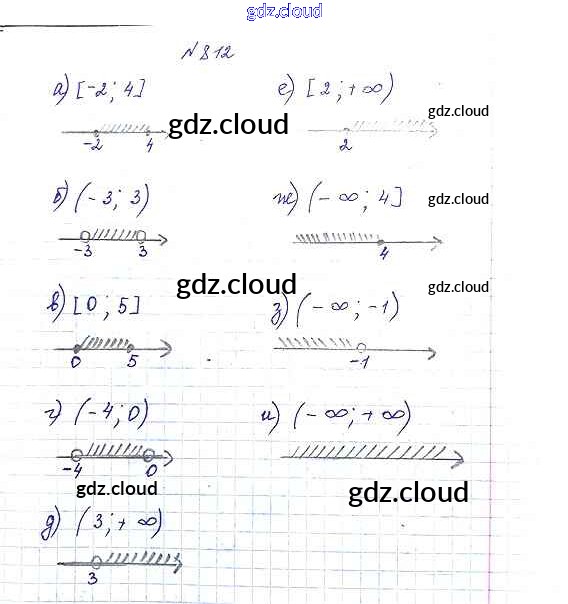 gdz.cloud
N 812
а) [-2; 4]
-2 4
gdz.cloud
б) (-3; 3)
-3 3
в) [0; 5]
0 5
gdz.cloud
г) (-4; 0)
-4 0
gdz.cloud
д) (3; +∞)
3
е) [2; +∞)
2
gdz.cloud
ж) (-∞; 4]
4
gdz.cloud
з) (-∞; -1)
-1
gdz.cloud
и) (-∞; +∞)
gdz.cloud
gdz.cloud